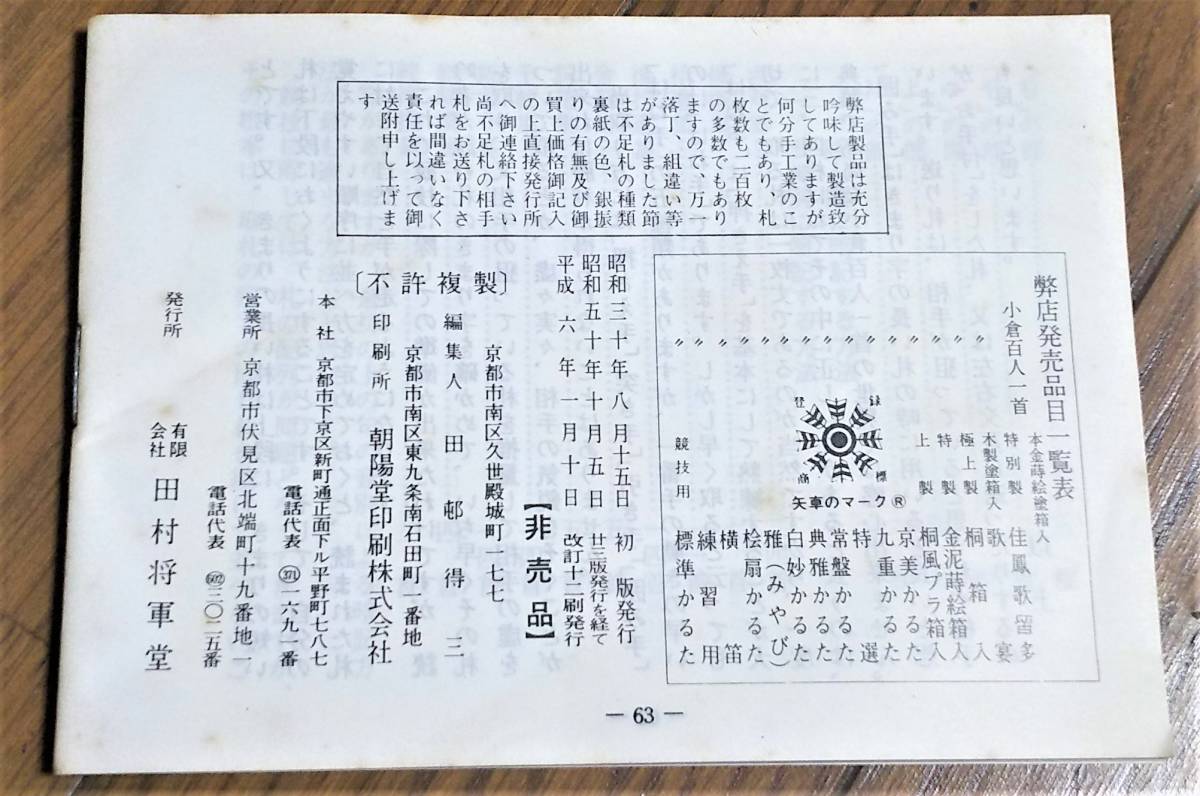 弊店製品は充分
吟味して製造致
してありますが
何分手工業のこ
とでもあり、札
枚数も二百枚
の多数でもあり
ますので、万一
落丁、組違い等
がありました節
は不足札の種類
裏紙の色、銀振
りの有無及び御
買上価格御記入
の上直接発行所
へ御連絡下さい
尚不足札の相手
札をお送り下さ
れば間違いなく
責任を以って御
送附申し上げま
す
弊店発売品目一覧表
小倉百人一首
本金蒔絵塗箱入 佳鳳歌留多
〃 特別製 歌宴
〃 木製塗箱入 桐箱入
〃 極上製 金泥蒔絵箱入
〃 特製 桐風プラ箱入
〃 上製 京美かるた
〃 九重かるた
〃 特選
〃 常盤かるた
〃 典雅かるた
〃 白妙かるた
〃 雅(みやび)
〃 桧扇かるた
〃 横笛
〃 練習用
〃 競技用 標準かるた
登録商標
矢車のマーク®
昭和三十年八月十五日 初版発行
昭和五十年十月五日 廿三版発行を経て
平成六年一月十日 改訂十二刷発行
【非売品】
京都市南区久世殿城町一七七
編集人 田邨得三
京都市南区東九条南石田町一番地
印刷所 朝陽堂印刷株式会社
〔不許複製〕
本社 京都市下京区新町通正面下ル平野町七八七
電話代表 (371)一六九一番
営業所 京都市伏見区北端町十九番地一
電話代表 (602)三〇二五番
発行所 有限会社 田村将軍堂
— 63 —